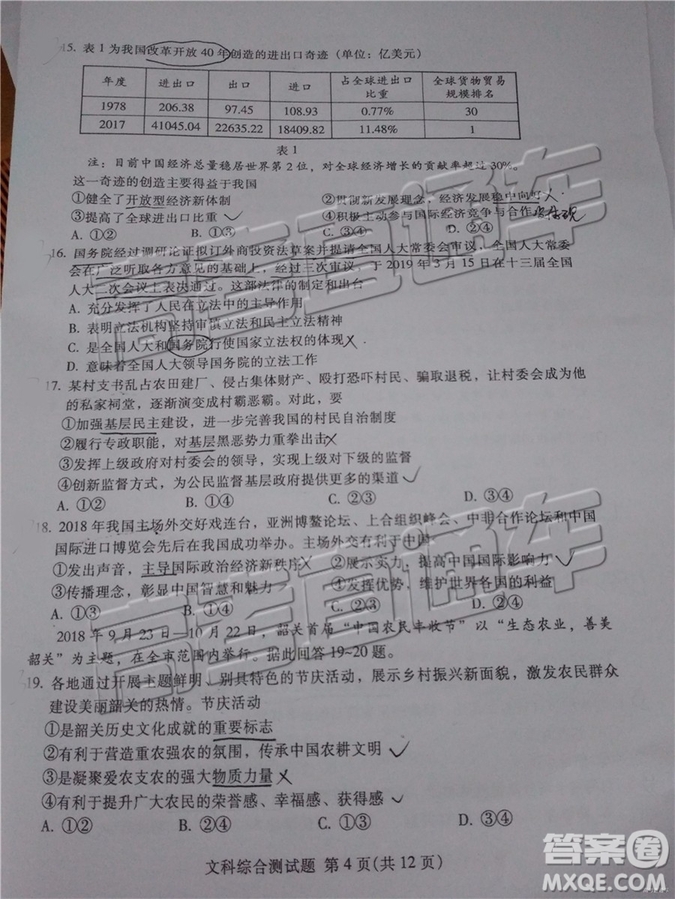 15. 表1为我国改革开放40年创造的进出口奇迹(单位:亿美元)
年度 进出口 出口 进口 占全球进出口比重 全球货物贸易规模排名
1978 206.38 97.45 108.93 0.77% 30
2017 41045.04 22635.22 18409.82 11.48% 1
表1
注:目前中国经济总量稳居世界第2位,对全球经济增长的贡献率超过30%。
这一奇迹的创造主要得益于我国
①健全了开放型经济新体制 ②贯彻新发展理念,经济发展稳中向好
③提高了全球进出口比重 ④积极主动参与国际经济竞争与合作
A. ①② B. ①④ C. ②③ D. ③④
16. 国务院经过调研论证拟订外商投资法草案并提请全国人大常委会审议,全国人大常委
会在广泛听取各方意见的基础上,经过三次审议,于2019年3月15日在十三届全国
人大二次会议上表决通过。这部法律的制定和出台
A. 充分发挥了人民在立法中的主导作用
B. 表明立法机构坚持审慎立法和民主立法精神
C. 是全国人大和国务院行使国家立法权的体现
D. 意味着全国人大领导国务院的立法工作
17. 某村支书乱占农田建厂、侵占集体财产、殴打恐吓村民、骗取退税,让村委会成为他
的私家祠堂,逐渐演变成村霸恶霸。对此,要
①加强基层民主建设,进一步完善我国的村民自治制度
②履行专政职能,对基层黑恶势力重拳出击
③发挥上级政府对村委会的领导,实现上级对下级的监督
④创新监督方式,为公民监督基层政府提供更多的渠道
A. ①② B. ①④ C. ②③ D. ③④
18. 2018年我国主场外交好戏连台,亚洲博鳌论坛、上合组织峰会、中非合作论坛和中国
国际进口博览会先后在我国成功举办。主场外交有利于中国
①发出声音,主导国际政治经济新秩序 ②展示实力,提高中国国际影响力
③传播理念,彰显中国智慧和魅力 ④发挥优势,维护世界各国的利益
A. ①③ B. ①④ C. ②③ D. ②④
2018年9月23日—10月22日,韶关首届“中国农民丰收节”以“生态农业,善美
韶关”为主题,在全市范围内举行。据此回答19~20题。
19. 各地通过开展主题鲜明、别具特色的节庆活动,展示乡村振兴新面貌,激发农民群众
建设美丽韶关的热情。节庆活动
①是韶关历史文化成就的重要标志
②有利于营造重农强农的氛围,传承中国农耕文明
③是凝聚爱农支农的强大物质力量
④有利于提升广大农民的荣誉感、幸福感、获得感
A. ①② B. ①③ C. ②④ D. ③④
文科综合测试题 第4页(共12页)
高考直通车
高考直通车
答案圈
MXQE.COM